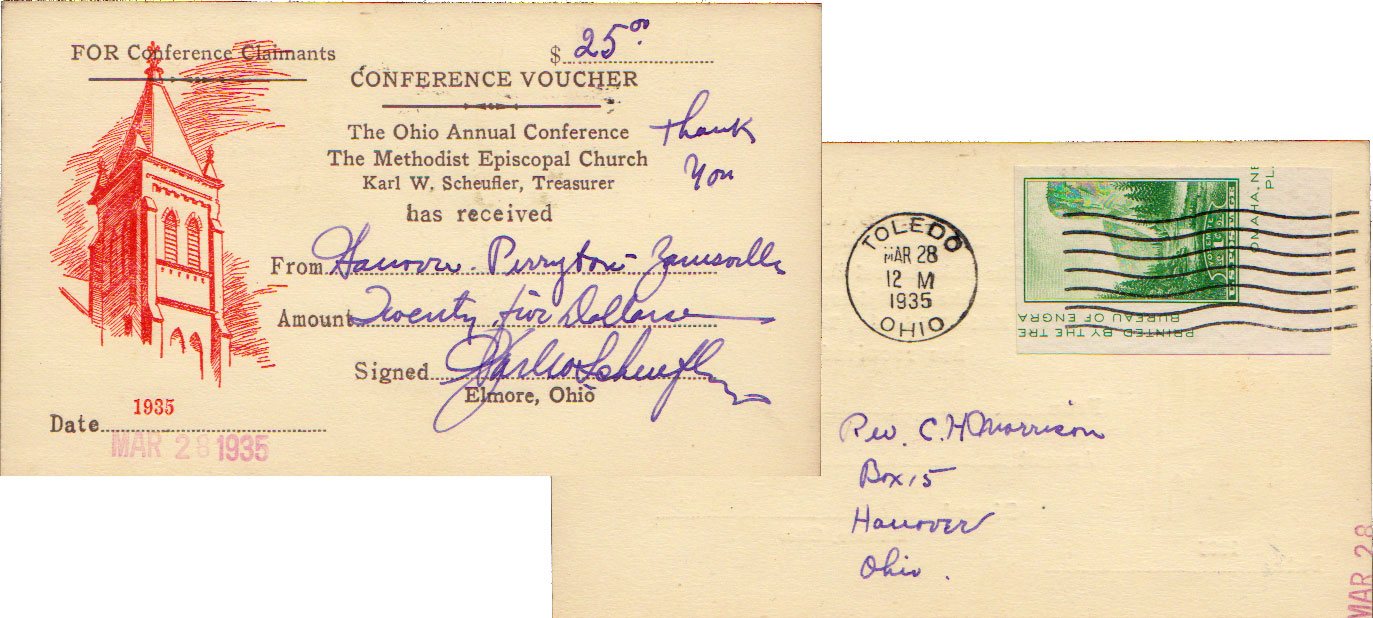 FOR Conference Claimants
$ 25.00
CONFERENCE VOUCHER
The Ohio Annual Conference
The Methodist Episcopal Church
Karl W. Scheufler, Treasurer
has received
Thank
You
From Hanover - Perryton - Zanesville
Amount Twenty five Dollars
Signed Karl W Scheufler
Elmore, Ohio
1935
Date
MAR 28 1935
TOLEDO
MAR 28
12 M
1935
OHIO
OMAHA, NE
PL
PRINTED BY THE TRE
BUREAU OF ENGRA
Rev. C. H Morrison
Box 15
Hanover
Ohio.
MAR 28